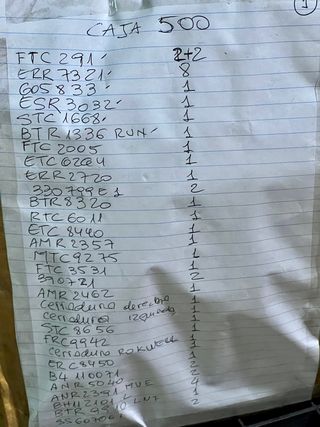 1
CAJA 500
FTC 291 2+2
ERR 7321 8
605833 1
ESR 3032 1
STC 1668 1
BTR 1336 RUN 1
FTC 2005 1
ETC 6264 1
ERR 2720 1
330799E1 2
BTR 8320 1
RTC 6011 1
ETC 8440 1
AMR 2357 1
MTC 9275 1
FTC 3531 1
390721 2
AMR 2462 1
cerradura derecha 1
cerradura izquierda 1
STC 8656 1
FRC 9942 1
cerradura 1
ERC 8450 1
B4 116071 2
ANR 5040 4
ANR 2391 MUE 1
2